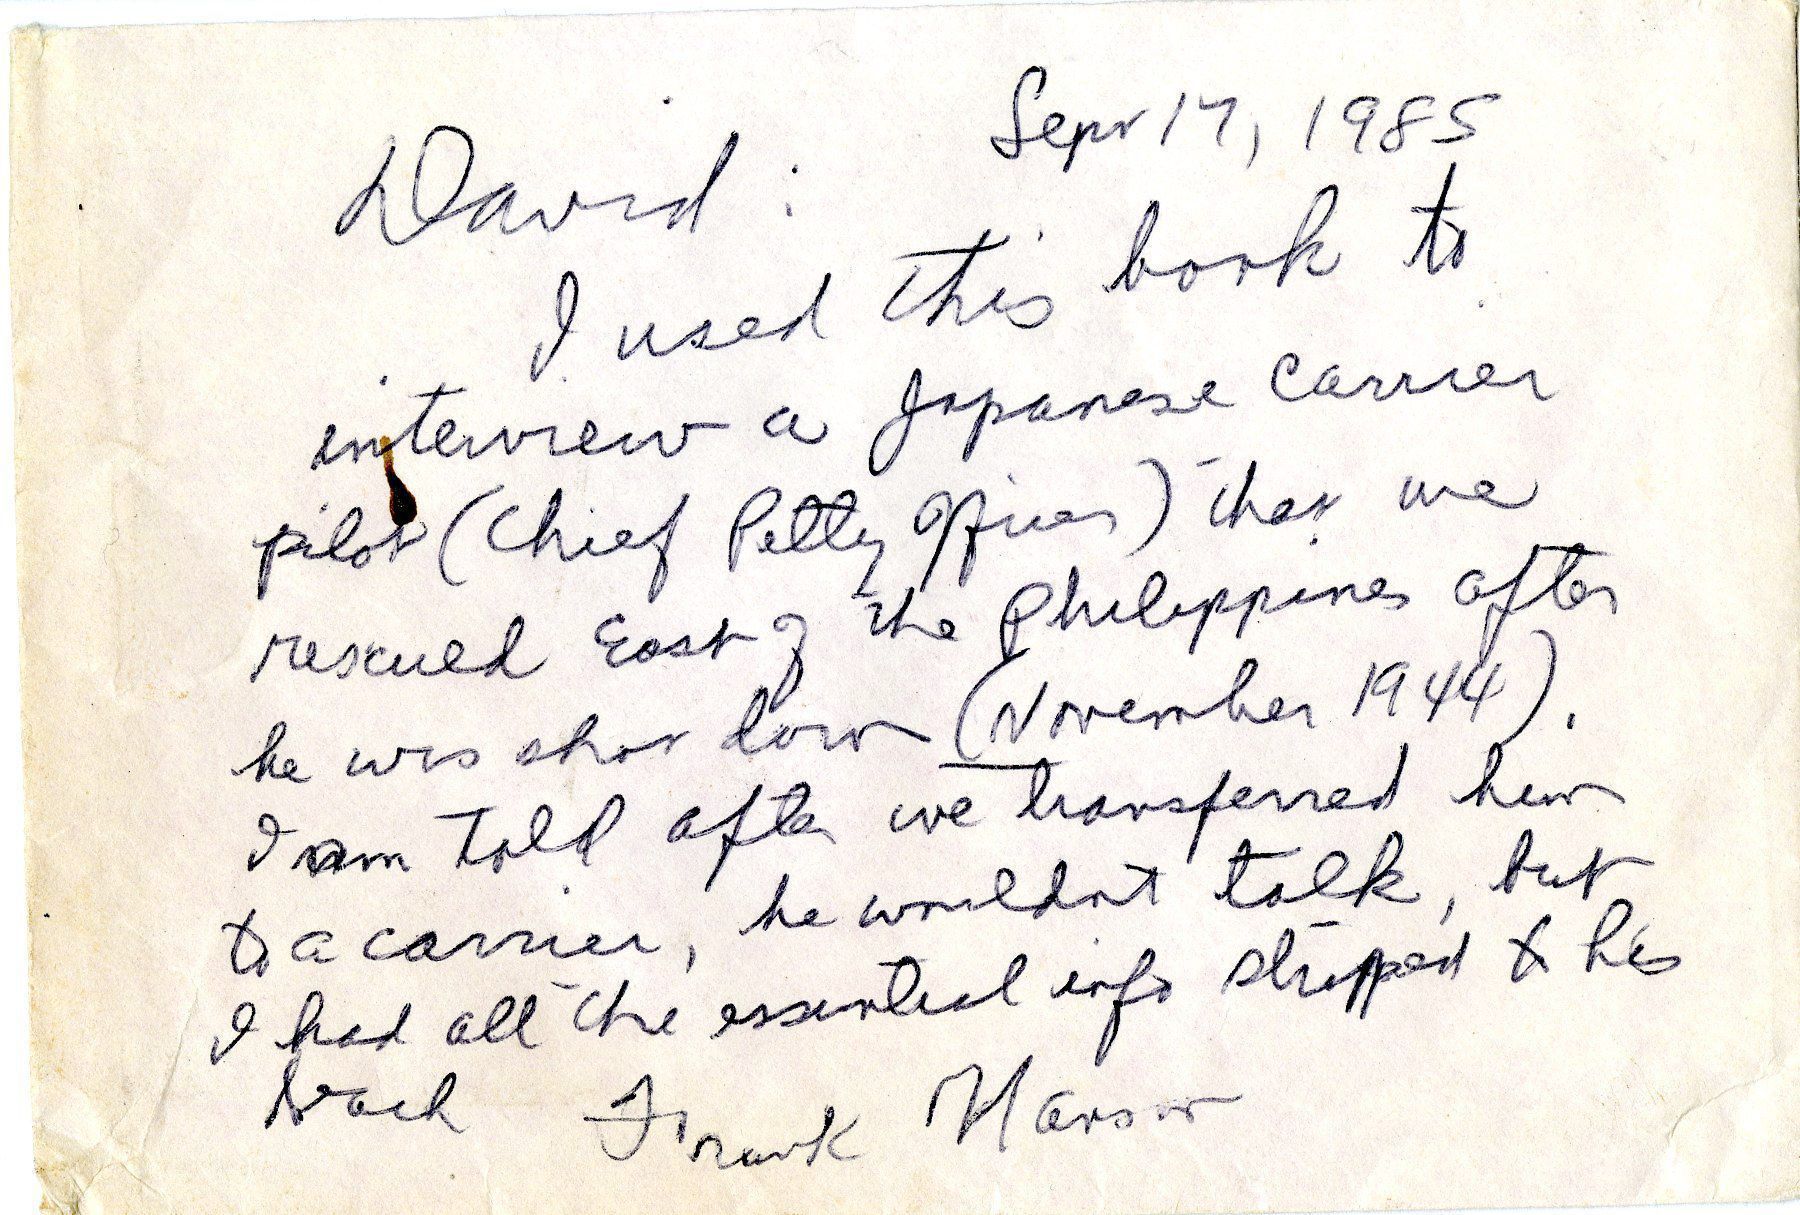 Sept 17, 1985
David:
I used this book to
interview a Japanese carrier
pilot (Chief Petty Officer) that we
rescued East of the Philippines after
he was shot down (November 1944).
I am told after we transferred him
to a carrier, he wouldn't talk, but
I had all the essential info stripped & his
Frank